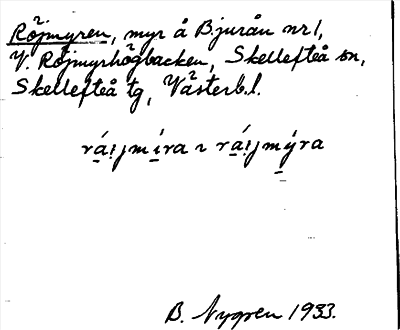 Röjmyren, myr å Bjurån nr 1,
V. Röjmyrhögbacken, Skellefteå sn,
Skellefteå tg, Västerb. l.
B. Nygren 1933.